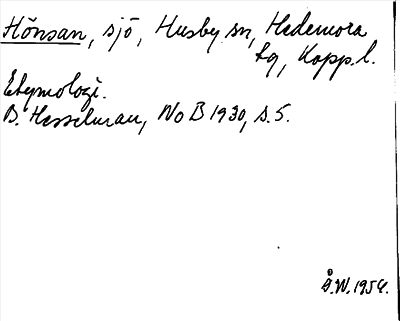 Hönsan, sjö, Husby sn, Hedemora
tg, Kopp.l.
Etymologi.
B. Hesselman, NoB 1930, s.5.
Å.W. 1954.